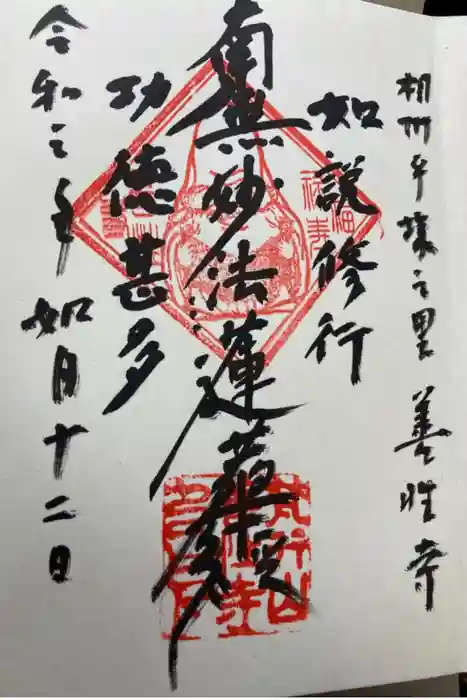 相州平塚之里 善性寺
如説修行
南無妙法蓮華経
功徳甚多
令和三年如月十二日
梵行山